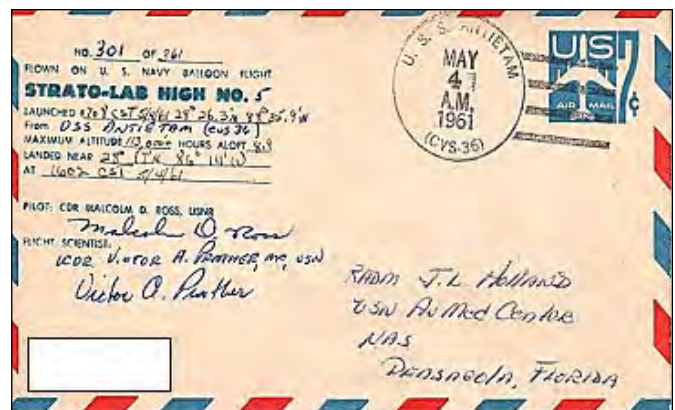 NO. 301 OF 961
FLOWN ON U. S. NAVY BALLOON FLIGHT
STRATO-LAB HIGH NO. 5
LAUNCHED 0708 CST 5/4/61
From USS ANTIETAM (CVS 36)
MAXIMUM ALTITUDE HOURS ALOFT
LANDED NEAR
AT 1602 CST 5/4/61
PILOT: CDR MALCOLM D. ROSS, USNR
Malcolm D. Ross
FLIGHT SCIENTIST:
LCDR. VICTOR A. PRATHER, MC, USN
Victor A. Prather
U. S. S. ANTIETAM
MAY
4
A.M.
1961
(CVS-36)
US 7¢
AIR MAIL
RADM J. L. HOLLAND
USN Av Med Center
NAS
PENSACOLA, FLORIDA